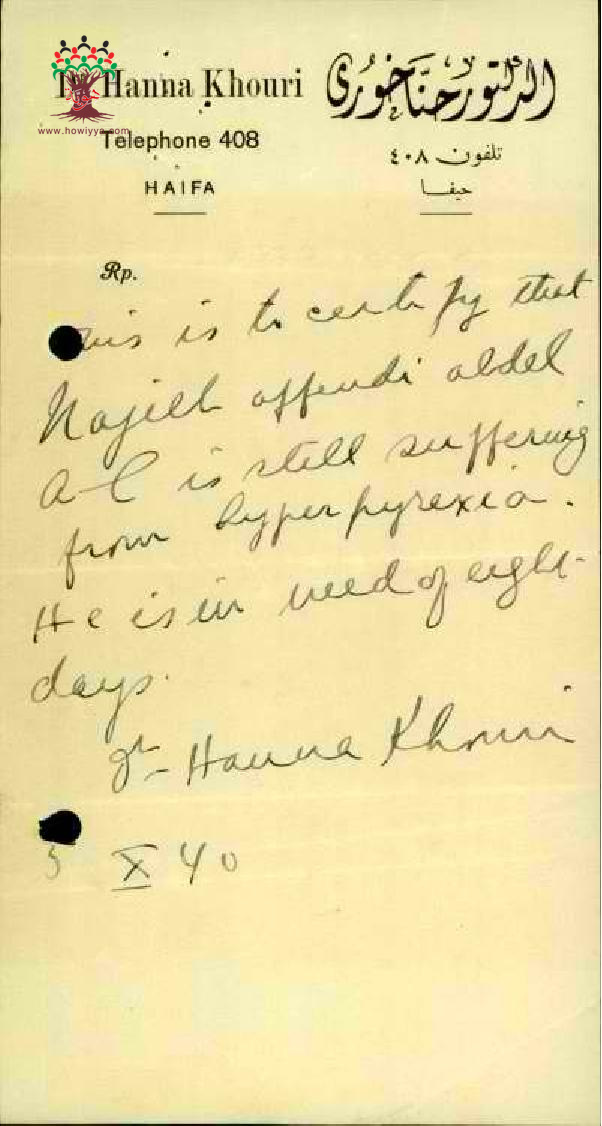 Dr Hanna Khouri
الدكتور حنا خوري
www.howiyya.com
Telephone 408
تلفون ٤٠٨
HAIFA
حيفا
Rp.
This is to certify that
Najieb affendi abdel
is still suffering
from hyperpyrexia.
He is in need of eight
days.
Dr Hanna Khouri
5 X 40